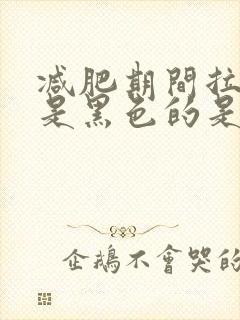 減肥期間拉
是黑色的是
企鵝不會哭的